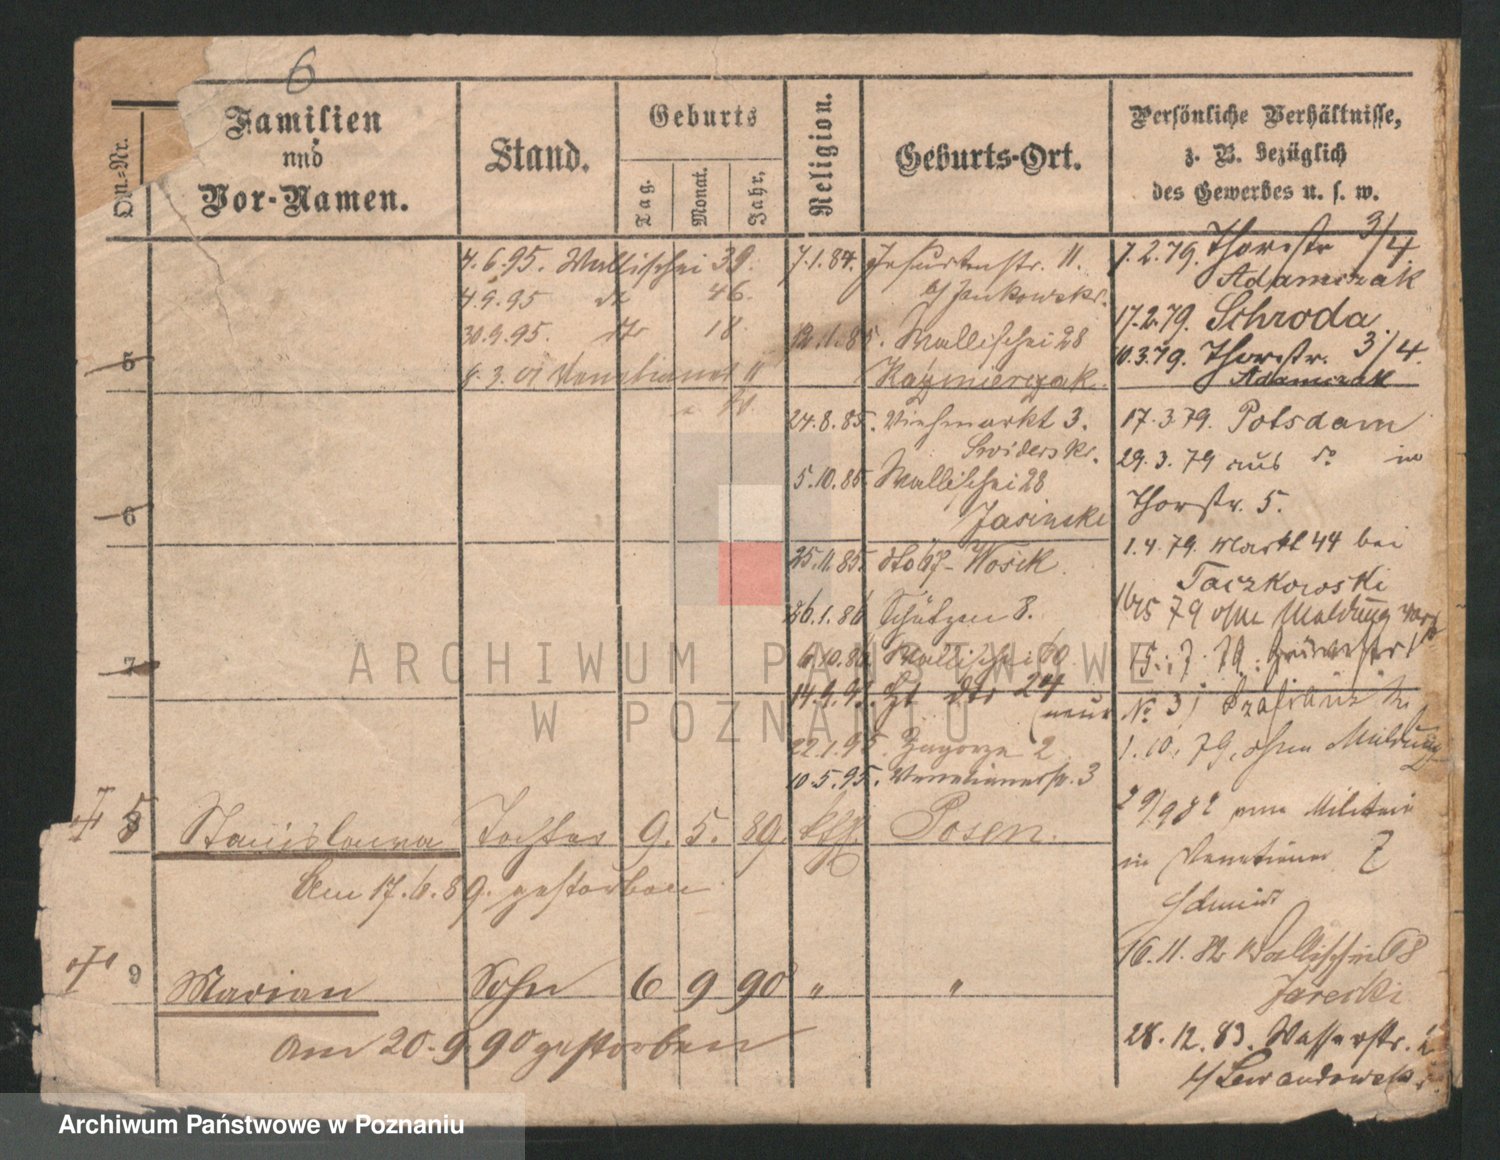 6
Ord.-Nr.
Familien
und
Vor-Namen.
Stand.
Geburts
Tag.
Monat.
Jahr.
Religion.
Geburts-Ort.
Persönliche Verhältnisse,
z. B. bezüglich
des Gewerbes u. s. w.
4.6.95. Wallischei 39.
4.9.95 46.
30.9.95. 18
Venetianerstr 11
7.1.84. Jesuitenstr. 11.
b/ Jankowski.
12.1.85. Wallischei 28
Kazmierczak.
24.8.85. Viehmarkt 3.
Swiderski.
5.10.85 Wallischei 28
Jasinski
25.11.85. dto 67- Wosik.
26.1.86 Schützen 8.
6.10.86 Wallischei 60
24
22.1.95. Zagorze 2
10.5.95. Venetianerstr. 3
7.2.79. Thorstr 3/4
Adamczak
17.2.79. Schroda.
10.3.79. Thorstr. 3/4.
Adamczak
17.3.79. Potsdam
29.3.79 aus do in
Thorstr. 5.
1.4.79. Markt 44 bei
Taczkowski
79 ohne Meldung verz
15.7.79.
No 3
1.10.79, ohne Meldung
29/9 82 vom Militair
in Venetianer 7
Schmidt
16.11.82 Wallischei 68
Jareski
28.12.83. Wasserstr. 2
b/ Lewandowski.
5
6
7
8
Stanislawa Tochter 9. 5. 89. kth. Posen.
Am 17.6.89. gestorben
9
Marian Sohn 6 9 90 " "
Am 20.9.90 gestorben
ARCHIWUM PAŃSTWOWE
W POZNANIU
Archiwum Państwowe w Poznaniu